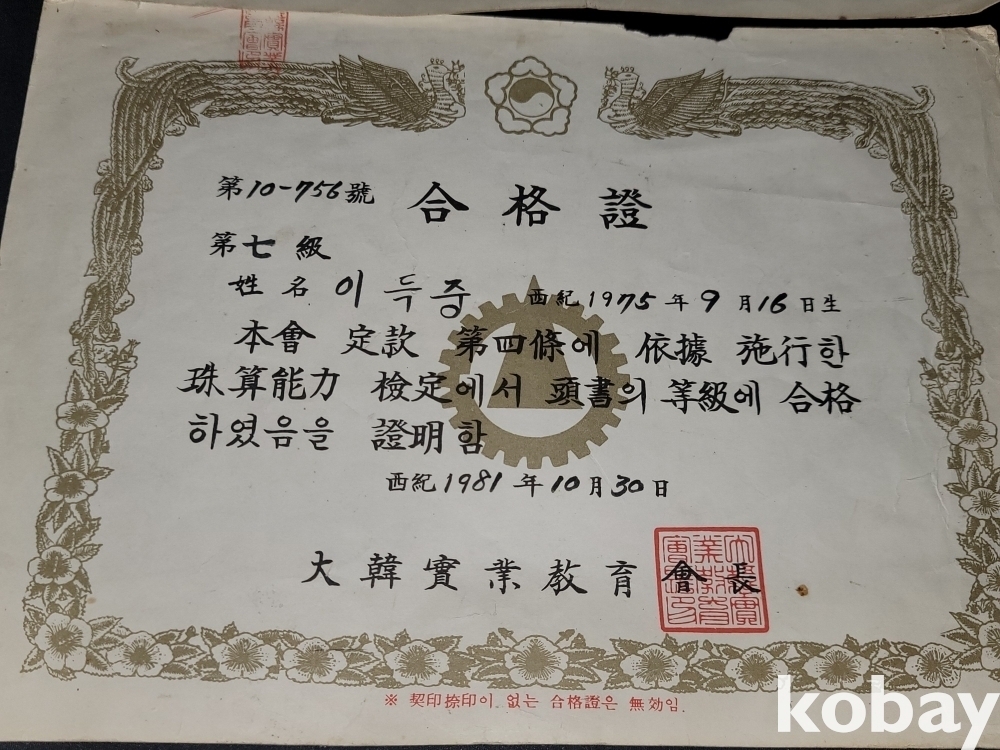 第10-756號
合格證
第七級
姓名 이득중 西紀1975年9月16日生
本會 定款 第四條에 依據 施行한
珠算能力 檢定에서 頭書의 等級에 合格
하였음을 證明함
西紀1981年10月30日
大韓實業教育會長
※ 契印捺印이 없는 合格證은 無効임.
kobay